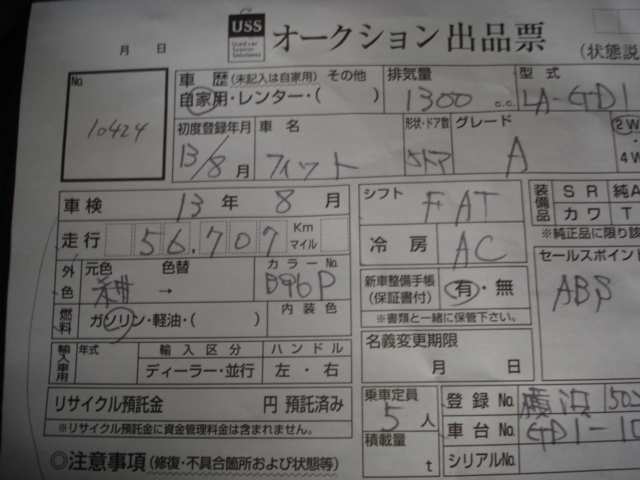 USS オークション出品票
月 日 (状態説
No. 10424
車歴(未記入は自家用) その他 排気量 型式
自家用・レンター・( ) 1300 c.c. LA-GD1
初度登録年月 車名 形状・ドア数 グレード
13/8月 フィット 5ドア A
2W
4W
車検 13年 8月 シフト FAT 装備品 SR 純A
カワ T
※純正品に限り該
走行 56,707 Km マイル 冷房 AC
セールスポイン
外色 元色 色替 カラーNo. 新車整備手帳(保証書付) 有・無
→ B96P ABS
燃料 ガソリン・軽油・( ) 内装色 ※書類と一緒に保管下さい。
名義変更期限
輸入車用 年式 輸入区分 ハンドル 月 日
ディーラー・並行 左・右
リサイクル預託金 円 預託済み 乗車定員 5人 登録No. 横浜 50
※リサイクル預託金に資金管理料金は含まれません。 車台No. GD1-10
積載量 t シリアルNo.
◎注意事項(修復・不具合箇所および状態等)